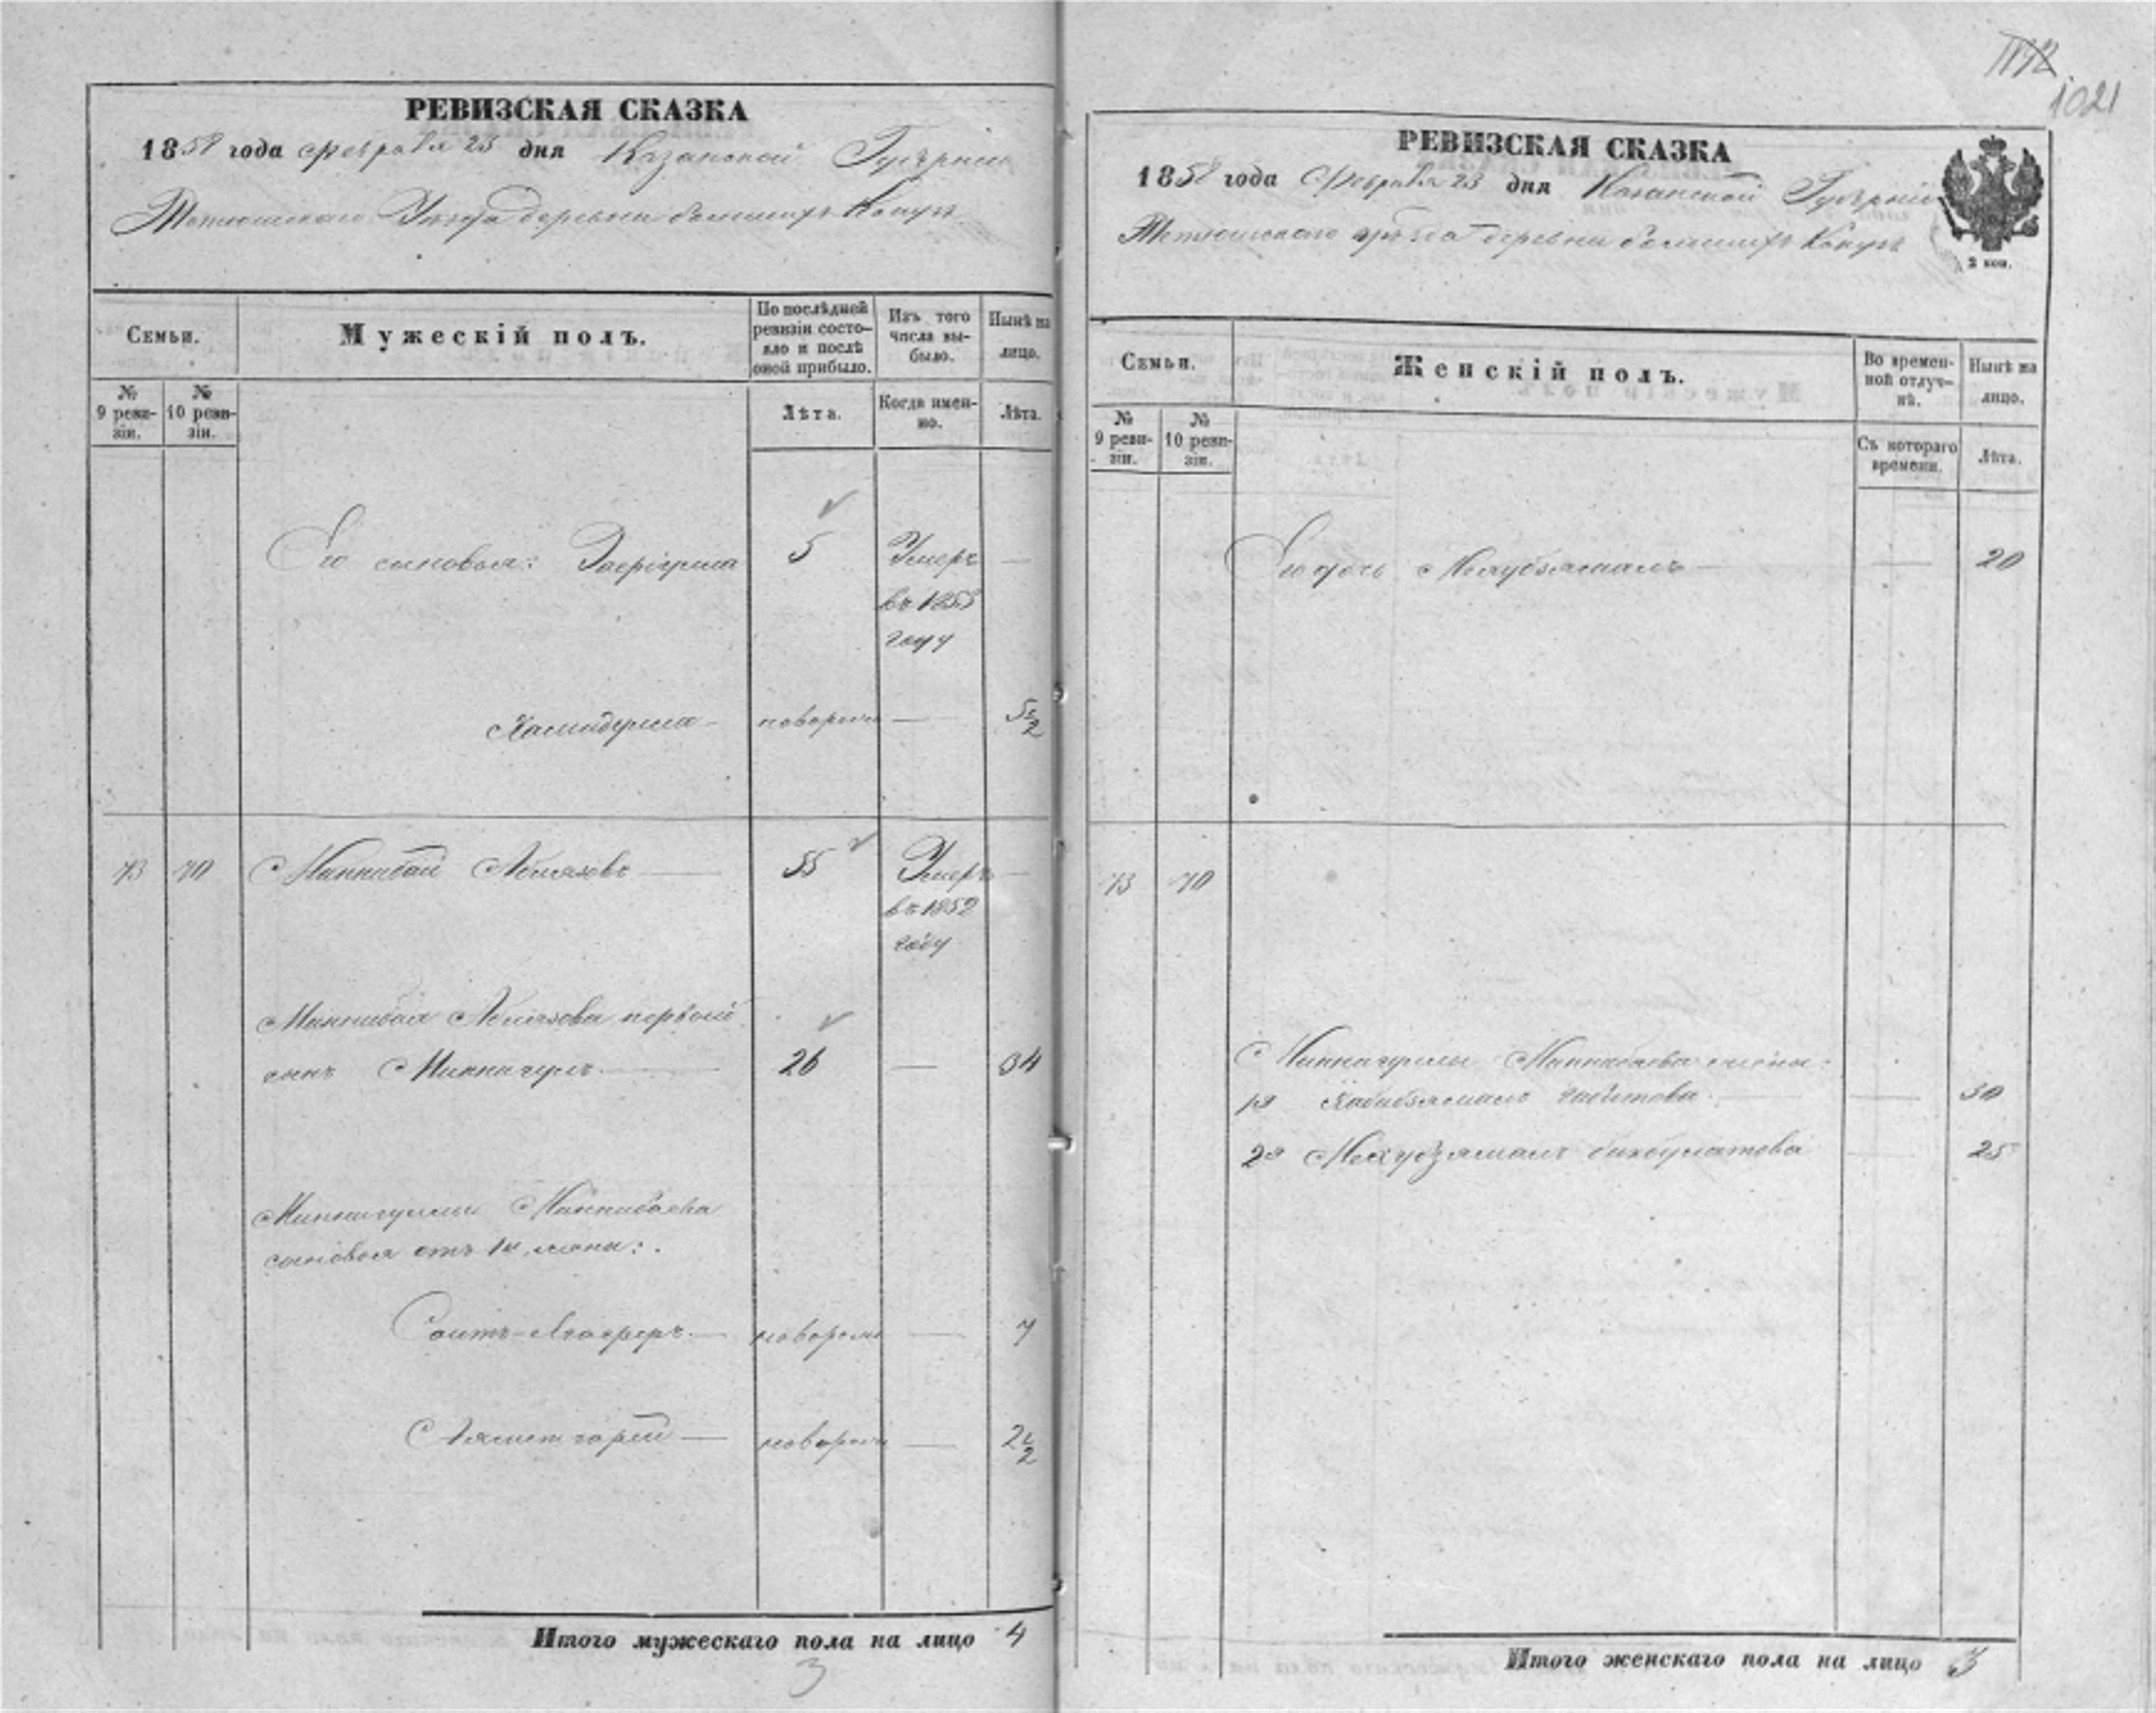 1112
1021
РЕВИЗСКАЯ СКАЗКА
1858 года Февраля 23 дня Казанской Губерніи
Тетюшскаго Уѣзда деревни
Семьи.
Мужескій полъ.
По послѣдней ревизіи состо-
яло и послѣ
оной прибыло.
Изъ того
числа вы-
было.
Нынѣ на
лицо.
№
9 реви-
зіи.
№
10 реви-
зіи.
Лѣта.
Когда имен-
но.
Лѣта.
Его сыновья: 5 Умеръ —
въ 1853
году
— новорож — 5½
73 70 Маннибай Абдязовъ — 55 Умеръ —
въ 1852
году
Маннибая первый
сынъ Миннигулъ — 26 — 34
Миннигулы Маннибаева
сыновья отъ 1й жены:
Саитъ- — новорож — 7
— новорож — 2½
Итого мужескаго пола на лицо 4
3
РЕВИЗСКАЯ СКАЗКА
1858 года Февраля 23 дня Казанской Губерніи
Тетюшскаго уѣзда деревни
3 коп.
Семьи.
Женскій полъ.
Во времен-
ной отлуч-
кѣ.
Нынѣ на
лицо.
№
9 реви-
зіи.
№
10 реви-
зіи.
Съ котораго
времени.
Лѣта.
Его дочь — — 20
73 70
Миннигулы Маннибаева жены:
1я Хабибзямалъ — — 30
2я Махубзямалъ Бикбулатова — 25
Итого женскаго пола на лицо 3